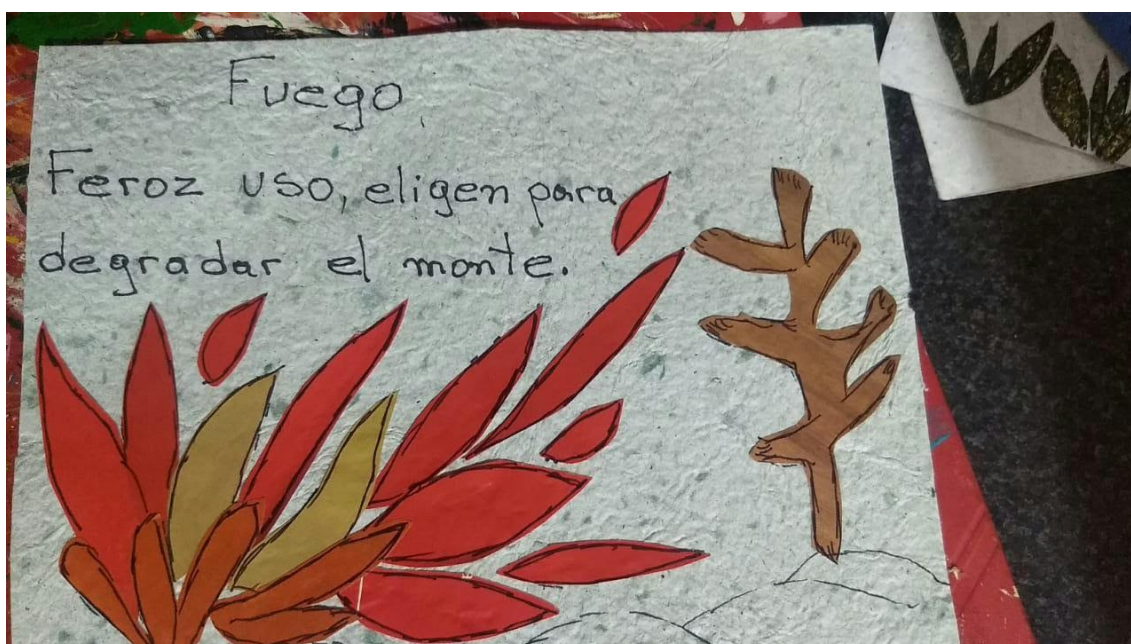 Fuego,
Feroz uso, eligen para
degradar el monte.